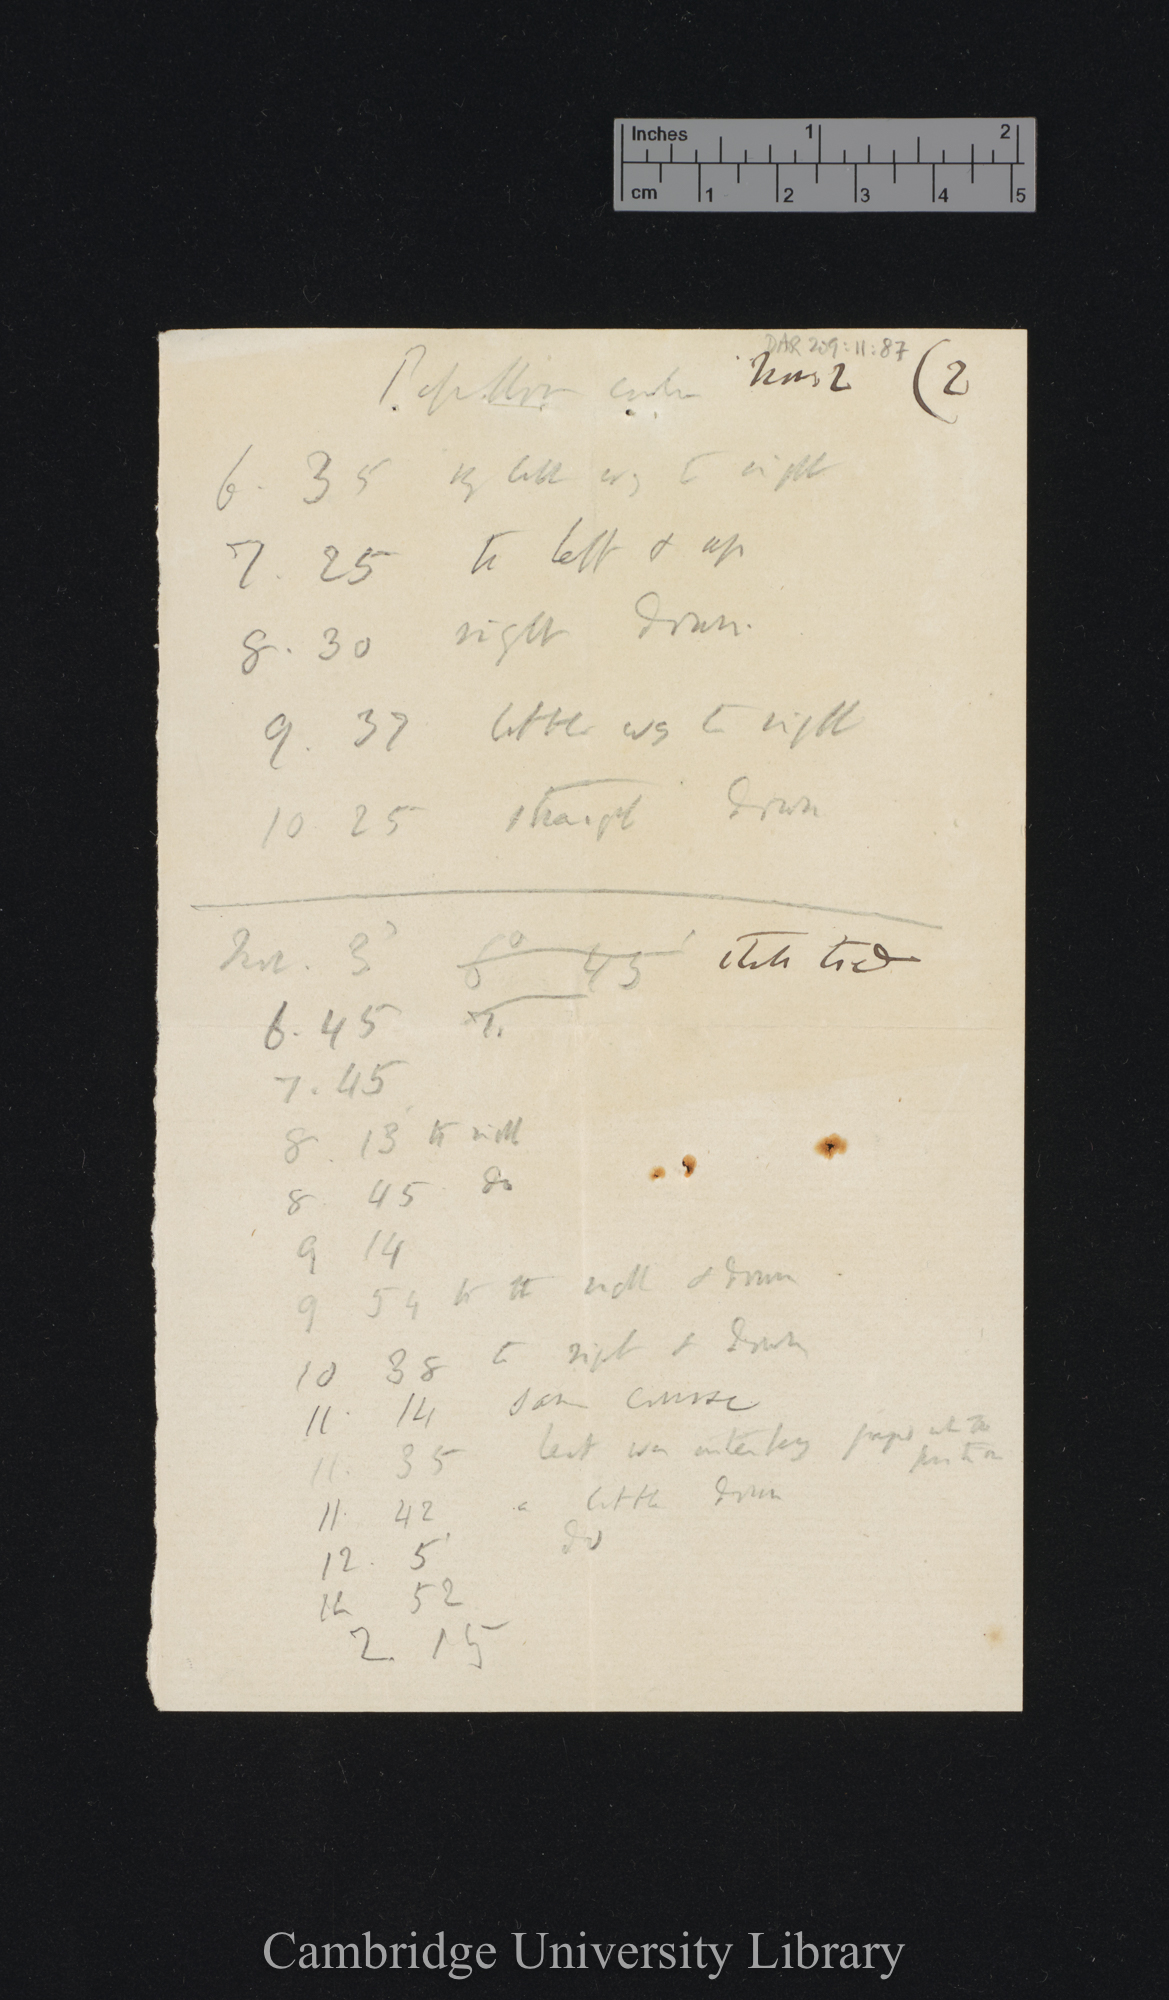 Inches 1 2
cm 1 2 3 4 5
DAR 209:11:87
(2
6. 35 left way to right
7. 25 to left & up
8. 30 right down.
9. 37 little way to right
10 25 straight down
Nov. 3 6° 45'
6. 45 7.
7. 45
8. 13 to right
8. 45 do
9 14
9 54 to the right & down
10 38 to right & down
11. 14 same course
11. 35 leaf was
position
11. 42 a little down
12. 5 do
12 52
2. 15
Cambridge University Library